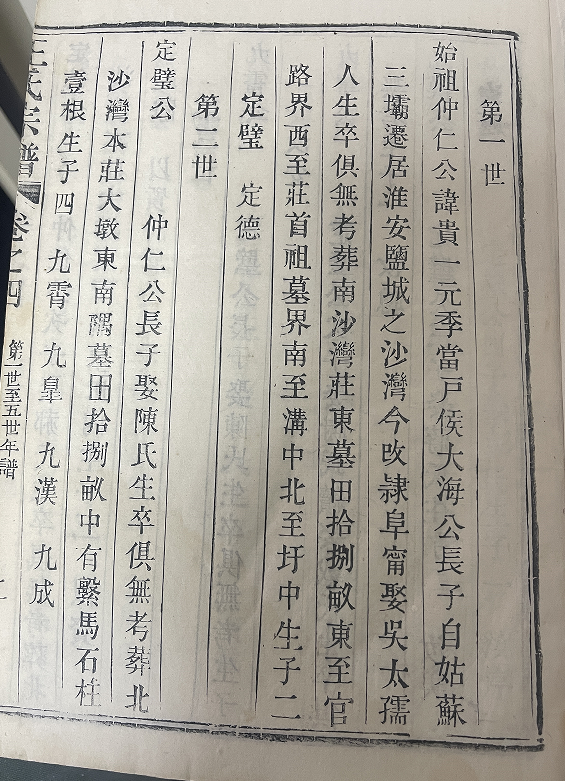 第一世
始祖仲仁公諱貴一元季當戸侯大海公長子自姑蘇
三壩遷居淮安鹽城之沙灣今改隸阜甯娶吳太孺
人生卒俱無考葬南沙灣莊東墓田拾捌畝東至官
路界西至莊首祖墓界南至溝中北至圩中生子二
定璧 定德
第二世
定璧公 仲仁公長子娶陳氏生卒俱無考葬北
沙灣本莊大墩東南隅墓田拾捌畝中有繫馬石柱
壹根生子四 九霄 九臯 九漢 九成
王氏宗譜 卷之四 第一世至五世年譜